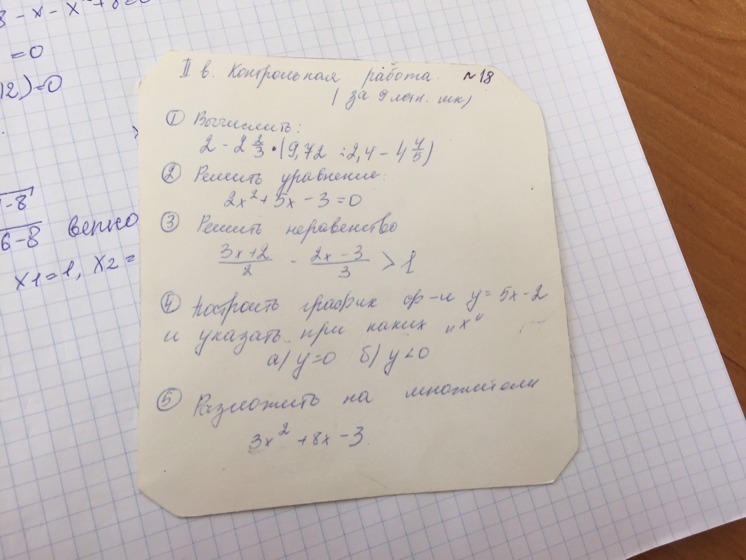 8 - x - x
=0
12)=0
II в. Контрольная работа №18
( за 9 летн. шк)
① Вычислить:
2 - 2 2/3 • (9,72 : 2,4 - 4 4/5)
② Решить уравнение:
2x² + 5x - 3 = 0
③ Решить неравенство
(3x+2)/2 - (2x-3)/3 > 1
6-8 верно
x1=1, x2=
④ Построить график ф-и y = 5x-2
и указать при каких "x"
а) y=0 б) y<0
⑤ Разложить на множители
3x² + 8x - 3.